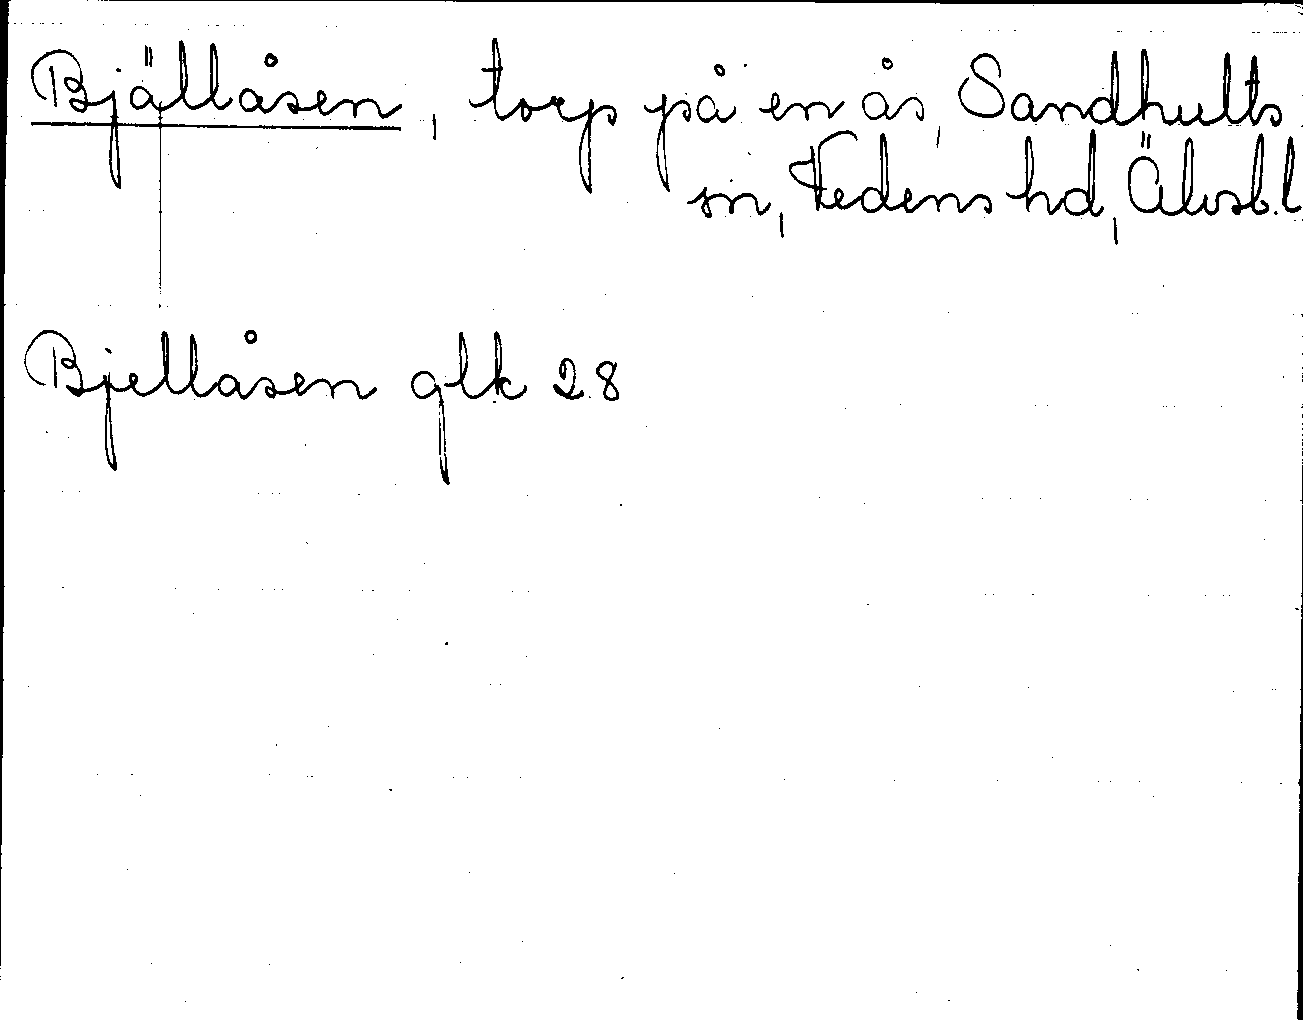 Bjällåsen, torp på en ås, Sandhults
sn, Vedens hd, Älvsb.l
Bjellåsen glk 28